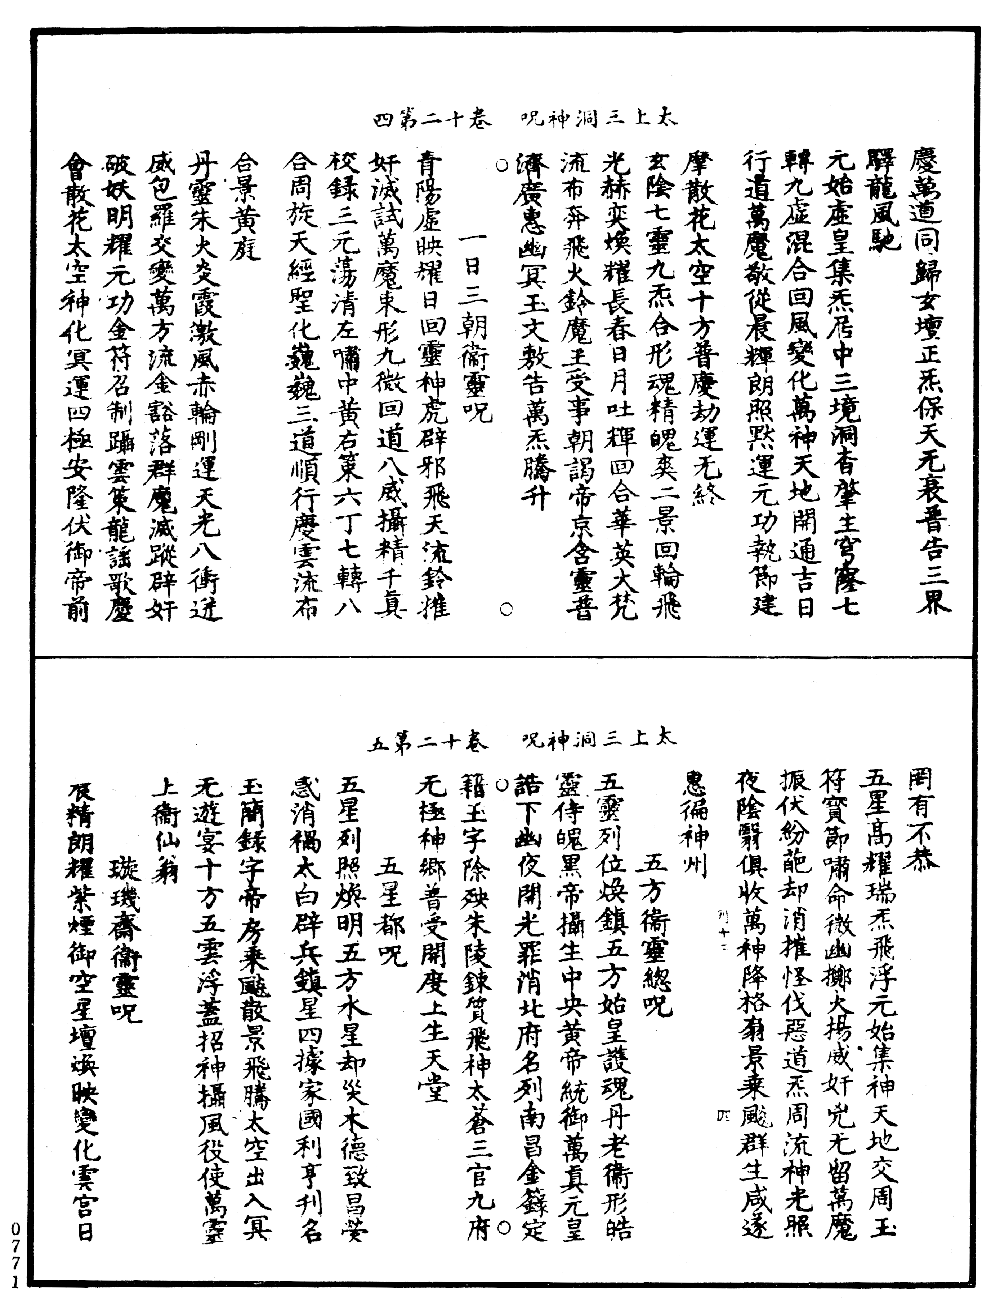 太上三洞神呪　卷十二第四
慶萬道同歸玄壇正炁保天无衰普告三界
驛龍風馳
元始虛皇集炁居中三境洞杳肇生穹窿七
轉九虛混合回風變化萬神天地開通吉日
行道萬魔敬從晨輝朗照默運元功執節建
摩散花太空十方普慶劫運无終
玄陰七靈九炁合形魂精魄奕二景回輪飛
光赫奕煥耀長春日月吐輝回合華英大梵
流布奔飛火鈴魔王受事朝謁帝京含靈普
濟廣惠幽冥玉文敷告萬炁騰升
一日三朝衞靈呪
青陽虛映耀日回靈神虎辟邪飛天流鈴摧
奸滅試萬魔束形九微回道八威攝精千真
校錄三元蕩清左嘯中黃右策六丁七轉八
合周旋天經聖化巍巍三道順行慶雲流布
合景黃庭
丹靈朱火炎霞激風赤輪剛運天光八衝迸
威包羅交變萬方流金豁落群魔滅蹤辟奸
破妖明耀元功金符召制躡雲策龍謡歌慶
會散花太空神化冥運四極安隆伏御帝前
太上三洞神呪　卷十二第五
罔有不恭
五星高耀瑞炁飛浮元始集神天地交周玉
符寶節嘯命徵幽擲火揚威奸兇无留萬魔
振伏紛葩却消摧怪伐惡道炁周流神光照
夜陰翳俱收萬神降格扇景乘飈群生咸遂
惠徧神州
五方衞靈總呪
五靈列位煥鎮五方始皇護魂丹老衞形皓
靈侍魄黑帝攝生中央黃帝統御萬真元皇
誥下幽夜開光罪消北府名列南昌金籙定
籍玉字除殃朱陵鍊質飛神太蒼三官九府
无極神鄉普受開度上生天堂
五星都呪
五星列照煥明五方水星却災木德致昌熒
惑消禍太白辟兵鎮星四據家國利亨刋名
玉簡錄字帝房乘飈散景飛騰太空出入冥
无遊宴十方五雲浮蓋招神攝風役使萬靈
上衞仙翁
璇璣齋衞靈呪
辰精朗耀紫煙御空星壇煥映變化雲宮日
0771